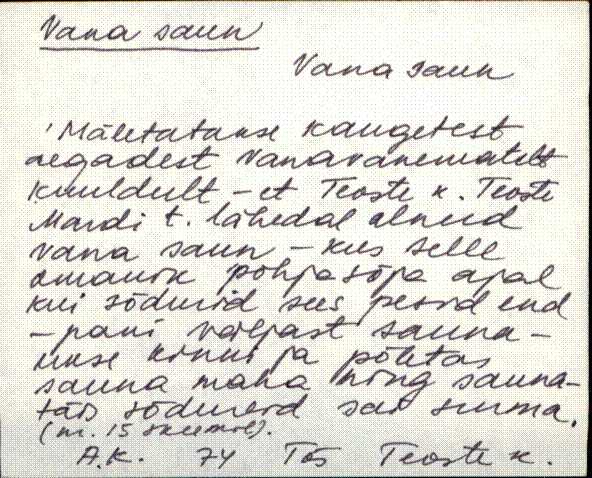 Vana saun
Vana saun
'Mäletatakse kaugetest
aegadest vanavanematelt
kuuldult - et Teoste k. Teoste
Mardi t. lähedal olnud
vana saun - kus selle
omanik põhjasõja ajal
kui sõdurid sees pesid end
- pani väljast sauna-
ukse kinni ja põletas
sauna maha ning sauna-
täis sõdureid sai surma.
(m. 15
A.K. 74 Tõs Teoste k.